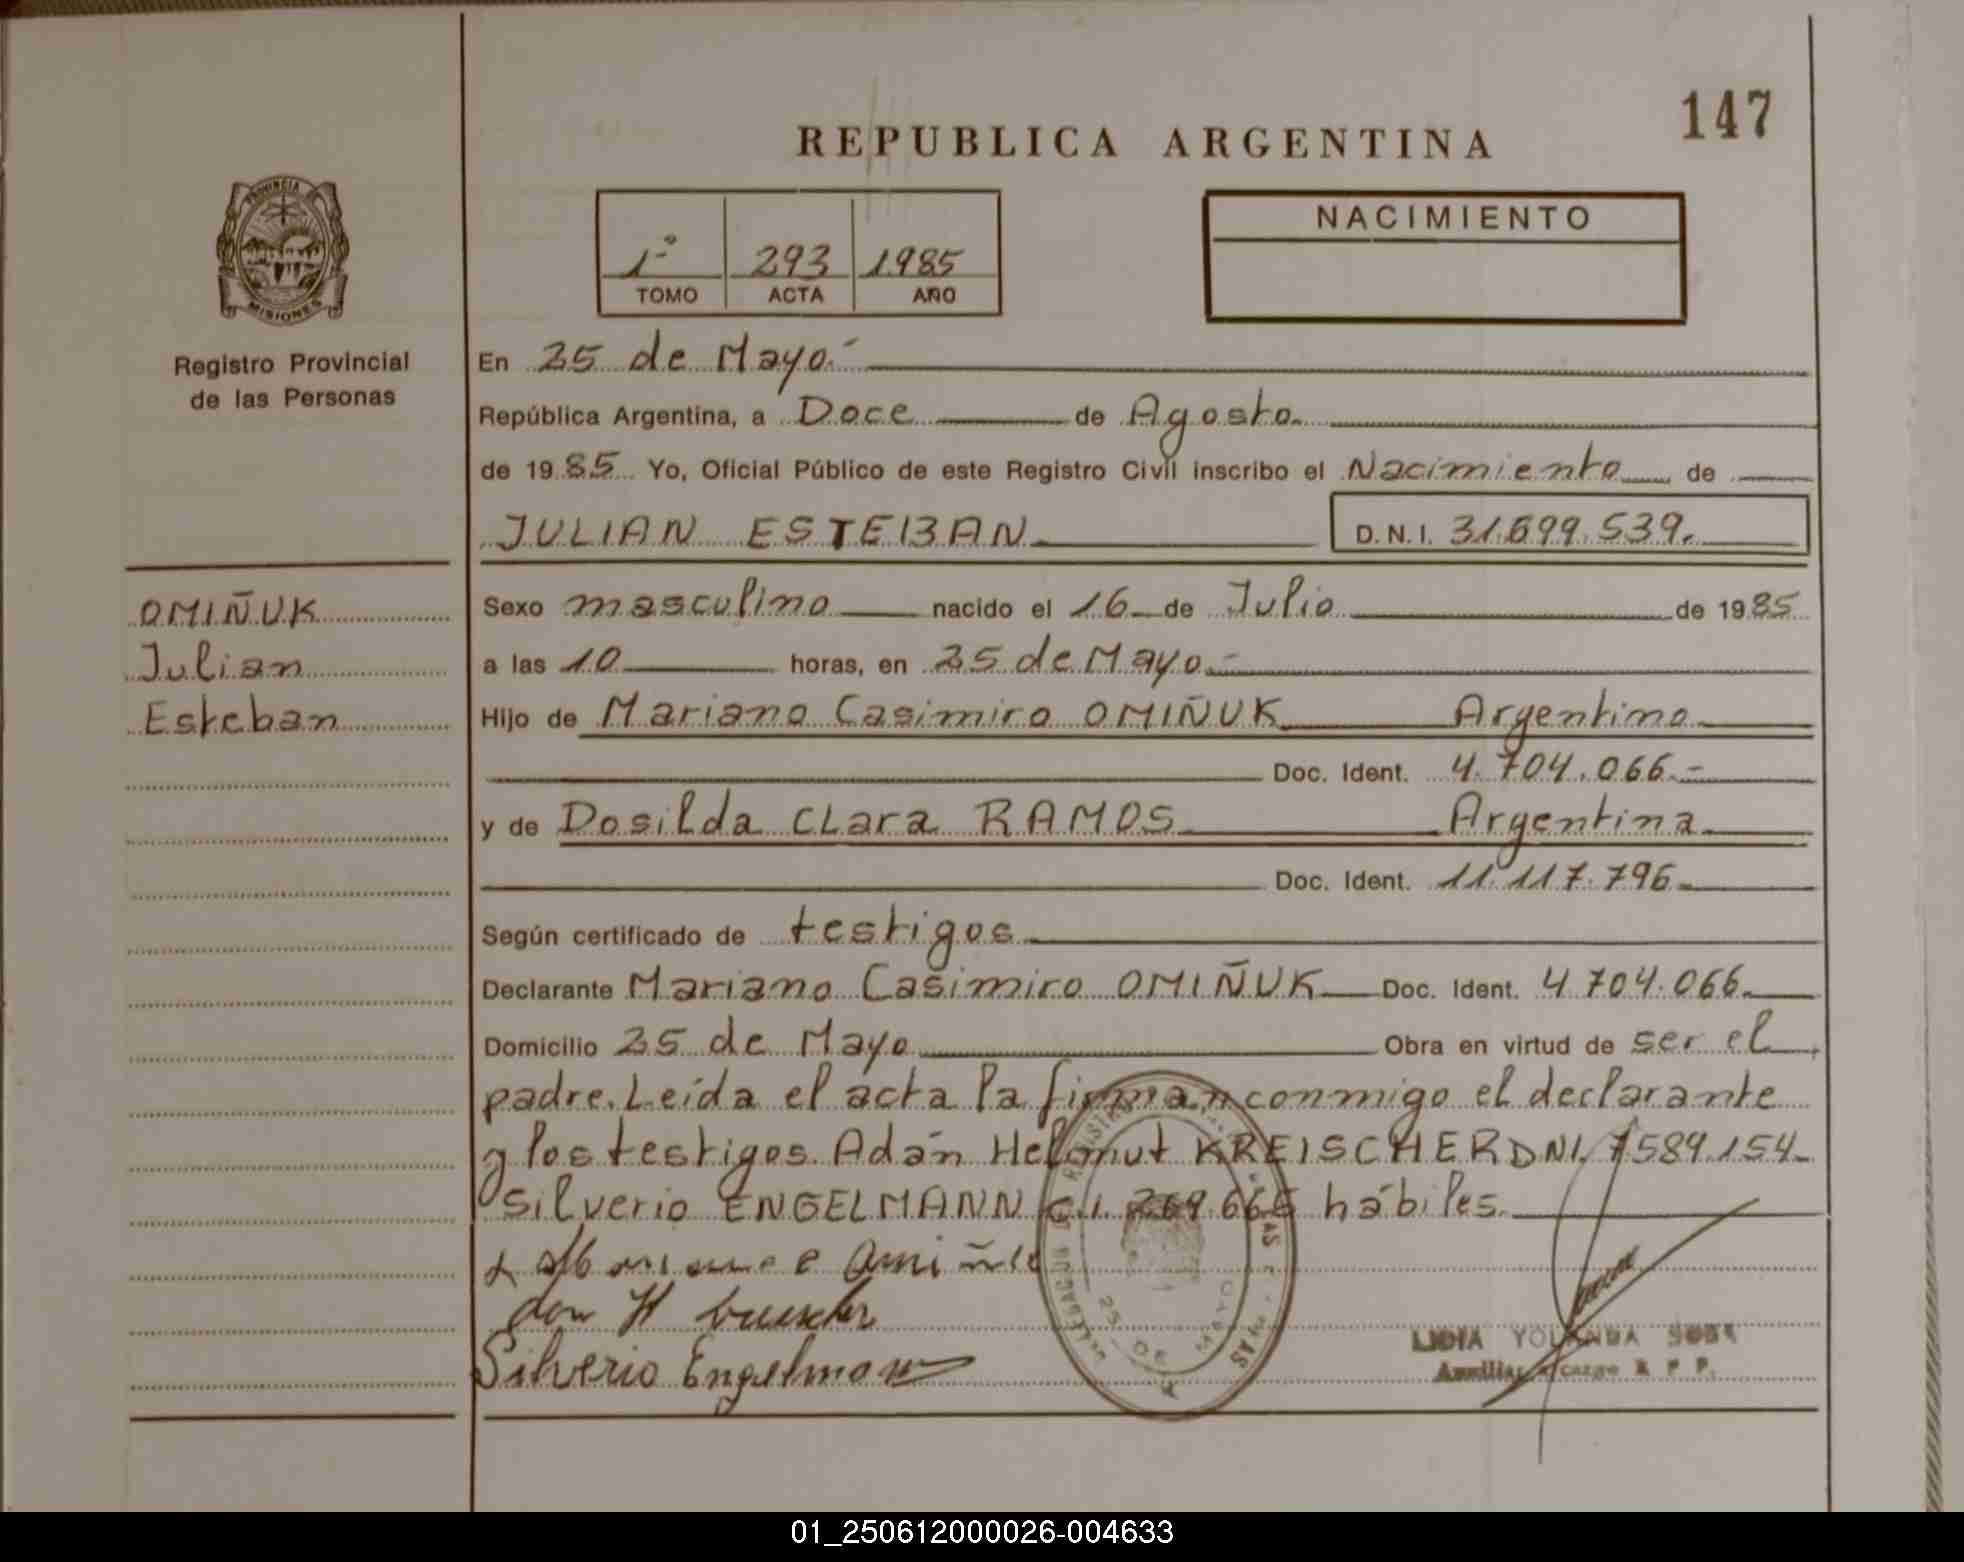 147
REPUBLICA ARGENTINA
PROVINCIA
MISIONES
Registro Provincial
de las Personas
1º 293 1985
TOMO ACTA AÑO
NACIMIENTO
En 25 de Mayo.-
República Argentina, a Doce de Agosto.
de 1985 Yo, Oficial Público de este Registro Civil inscribo el Nacimiento de
JULIAN ESTEBAN D.N.I. 31.699.539.
OMIÑUK
Julian
Esteban
Sexo masculino nacido el 16 de Julio de 1985
a las 10 horas, en 25 de Mayo.-
Hijo de Mariano Casimiro OMIÑUK Argentino
Doc. Ident. 4.704.066.-
y de Dosilda CLara RAMOS Argentina
Doc. Ident. 11.117.796
Según certificado de testigos
Declarante Mariano Casimiro OMIÑUK Doc. Ident. 4.704.066.
Domicilio 25 de Mayo Obra en virtud de ser el
padre. Leída el acta la firman conmigo el declarante
y los testigos. Adán Helmut KREISCHER DNI. 7589.154-
Silverio ENGELMANN C.I. 269.666 hábiles.
Silverio Engelmann
25 DE MAYO
LIDIA YOLANDA
Auxiliar a cargo R P P.
01_250612000026-004633